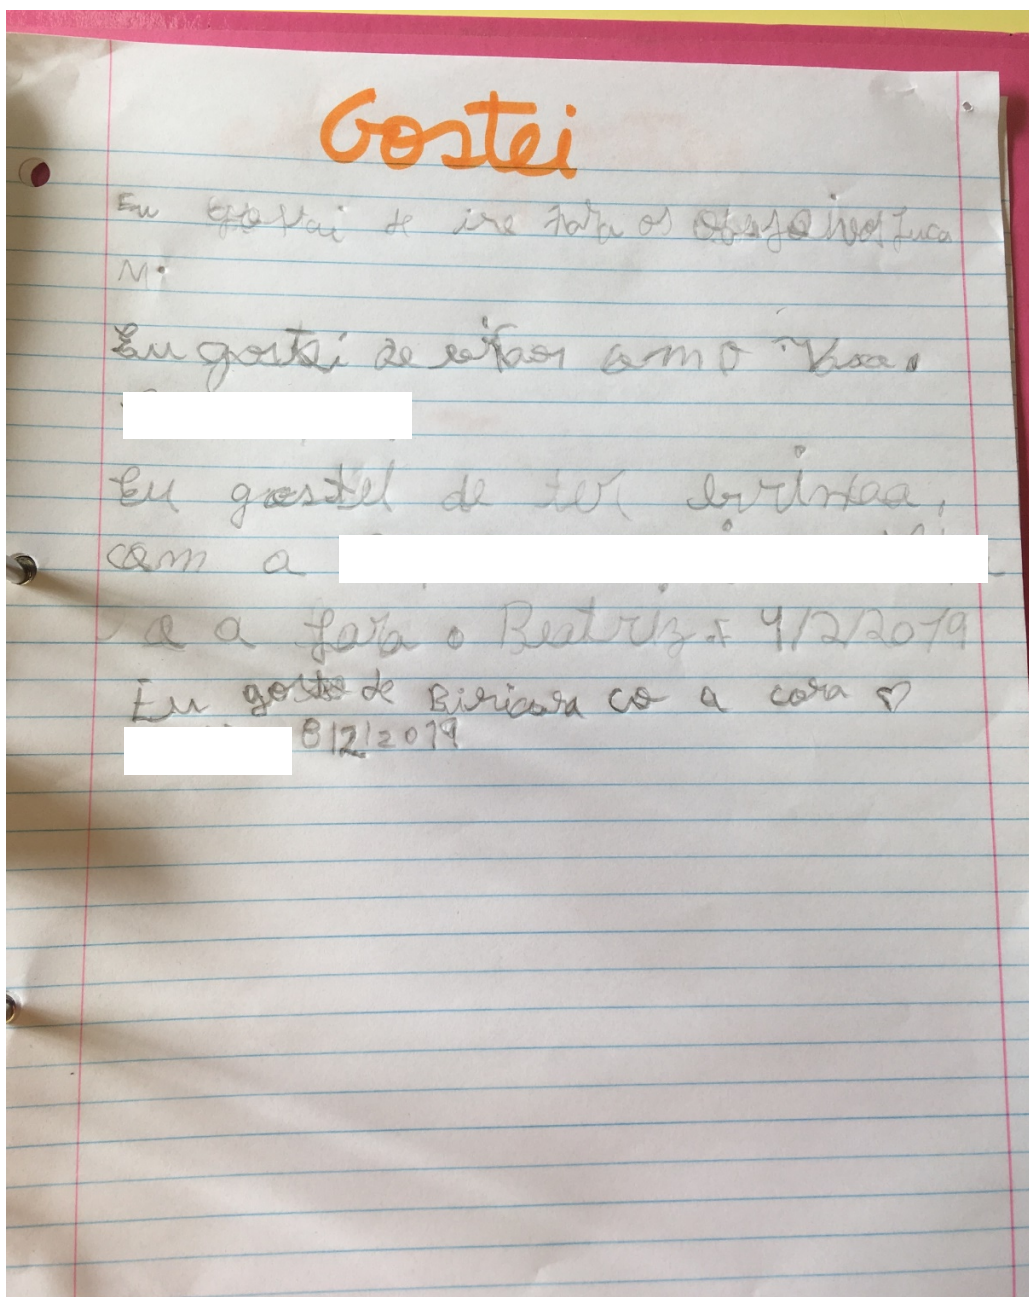 Gostei
Eu gostai de ire para os Luca
M.
Eu gostei de como Vasco.
Eu gostei de ter brinxaa.
com a
e a Jara o Beatriz 4/2/2019
Eu gosto de Biricara co a cora ♡
8/2/2019